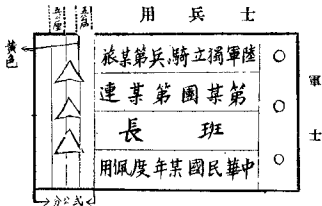 士兵用
陸軍獨立騎、兵第某旅
第某團第某連
班長
中華民國某年度佩用
軍士
黃色
弍公分